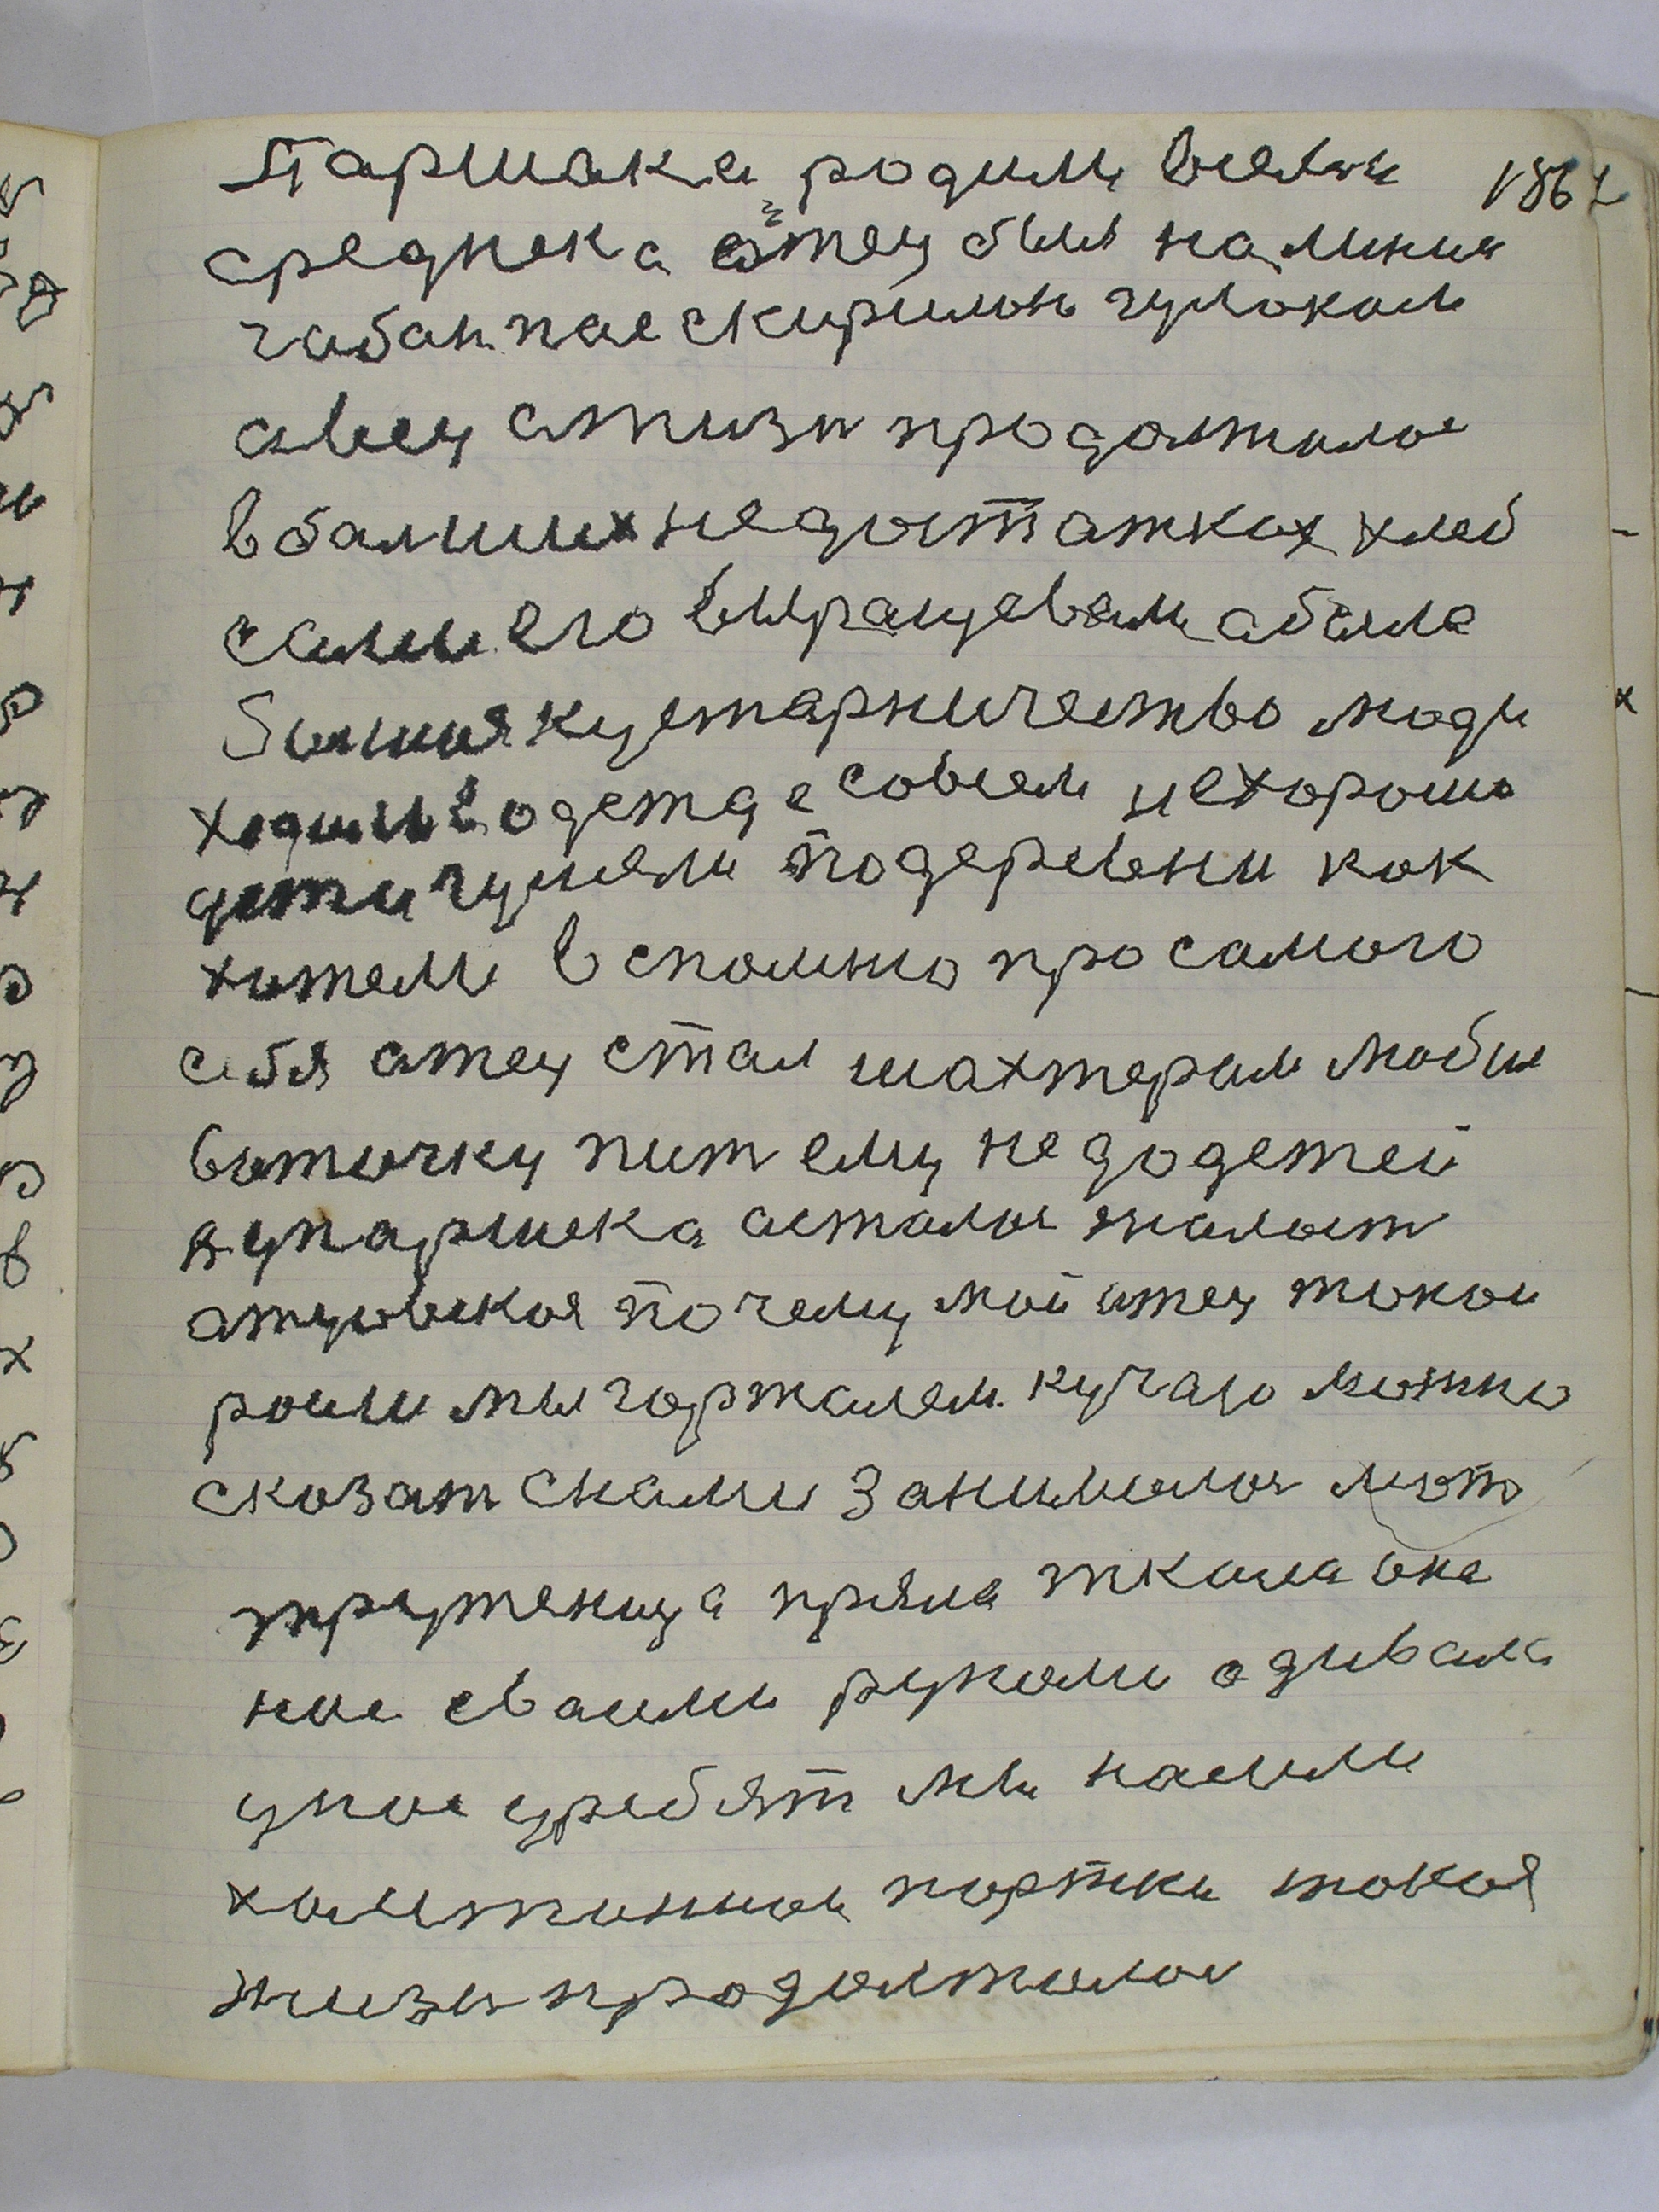 Паршака родили всемьи 1861
среднека отец был на линии
чабан пас скирилой чулоком
авец ажизн продолжалос
вбалших недостатках хлеб
сами его выращевали абыла
Зимняя кустарничество люди
ходили водежде совсем нехорошо
дети гуляли подеревни как
хотели вспомню просамого
себя атец стал шахтерам любил
воточку пит ему недодетей
я упаршека асталос жалост
атцовская почему мой атец такой
росли мы горжалем кучаю можно
сказат снами занималас мат
труженица пряла ткала она
нас сваими руками адивала
унас уребят мы насили
халстинные портки такая
жизн продолжалос